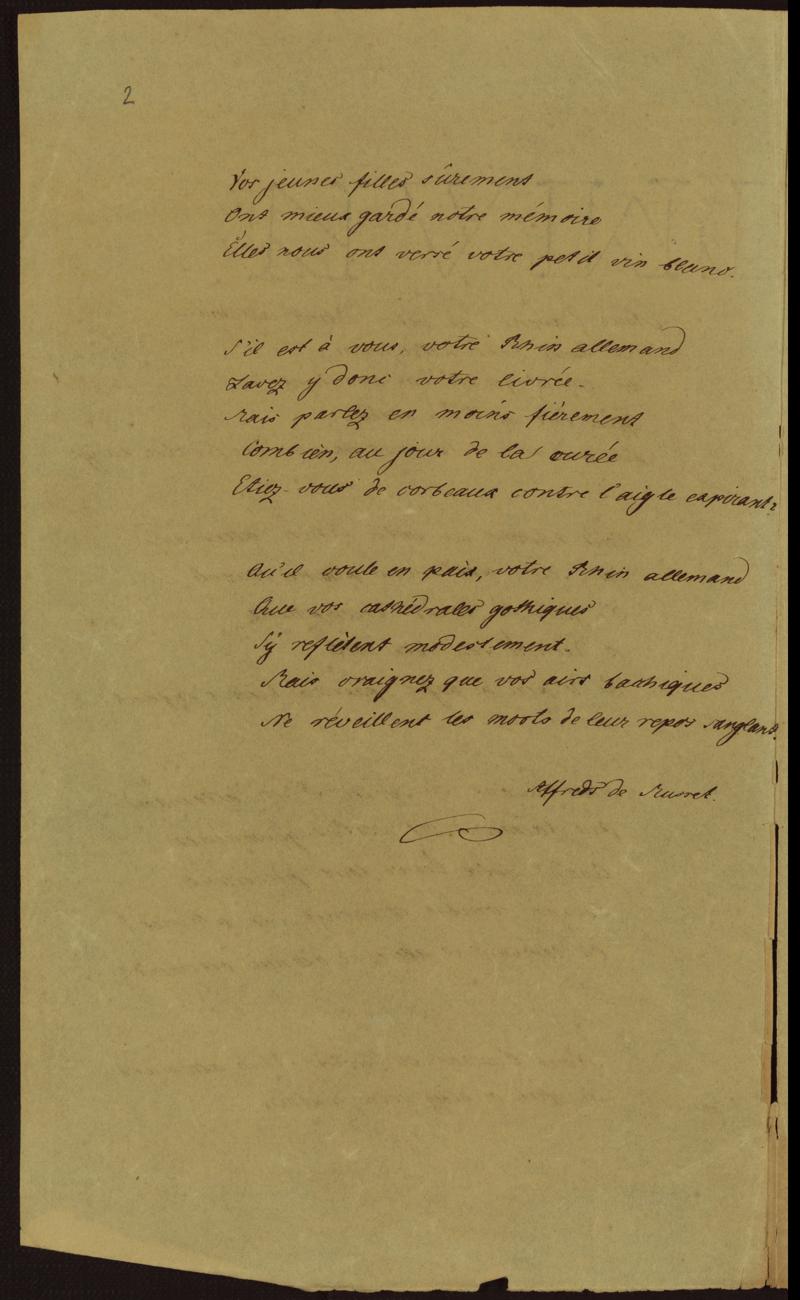 2
Vos jeunes filles sûrement
Ont mieux gardé notre mémoire
Elles nous ont versé votre petit vin blanc.
S'il est à vous, votre Rhin allemand
Lavez y donc votre livrée.
Mais parlez en moins fièrement
Combien, au jour de la curée
Etiez-vous de corbeaux contre l'aigle expirant?
Qu'il coule en paix, votre Rhin allemand
Que vos cathédrales gothiques
S'y reflètent modestement.
Mais craignez que vos airs bachiques
Ne réveillent les morts de leur repos sanglant.
Alfred de Musset.